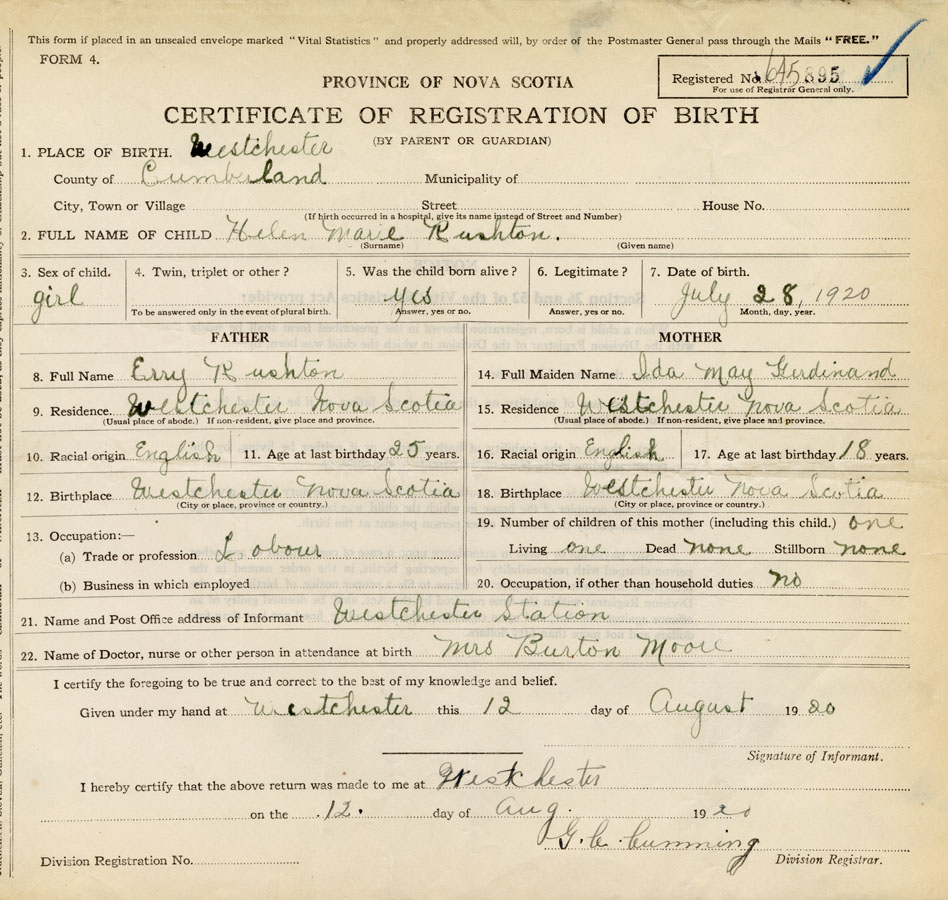 This form if placed in an unsealed envelope marked "Vital Statistics" and properly addressed will, by order of the Postmaster General pass through the Mails "FREE."
FORM 4.
Registered No. 645895
For use of Registrar General only.
PROVINCE OF NOVA SCOTIA
CERTIFICATE OF REGISTRATION OF BIRTH
(BY PARENT OR GUARDIAN)
1. PLACE OF BIRTH. Westchester
County of Cumberland Municipality of
City, Town or Village Street House No.
(If birth occurred in a hospital, give its name instead of Street and Number)
2. FULL NAME OF CHILD Helen Marie Rushton.
(Surname) (Given name)
3. Sex of child. 4. Twin, triplet or other? 5. Was the child born alive? 6. Legitimate? 7. Date of birth.
girl yes July 28, 1920
To be answered only in the event of plural birth. Answer, yes or no. Answer, yes or no. Month, day, year.
FATHER MOTHER
8. Full Name Erry Rushton 14. Full Maiden Name Ida May Gerdinand
9. Residence. Westchester Nova Scotia 15. Residence Westchester Nova Scotia
(Usual place of abode.) If non-resident, give place and province. (Usual place of abode.) If non-resident, give place and province.
10. Racial origin English 11. Age at last birthday 25 years. 16. Racial origin English 17. Age at last birthday 18 years.
12. Birthplace Westchester Nova Scotia 18. Birthplace Westchester Nova Scotia
(City or place, province or country.) (City or place, province or country.)
13. Occupation:— 19. Number of children of this mother (including this child.) one
(a) Trade or profession Labour Living one Dead none Stillborn none
(b) Business in which employed 20. Occupation, if other than household duties no
21. Name and Post Office address of Informant Westchester Station
22. Name of Doctor, nurse or other person in attendance at birth Mrs Burton Moore
I certify the foregoing to be true and correct to the best of my knowledge and belief.
Given under my hand at Westchester this 12 day of August 1920
Signature of Informant.
I hereby certify that the above return was made to me at Westchester
on the 12. day of Aug. 1920
G. C. Cumming
Division Registration No. Division Registrar.